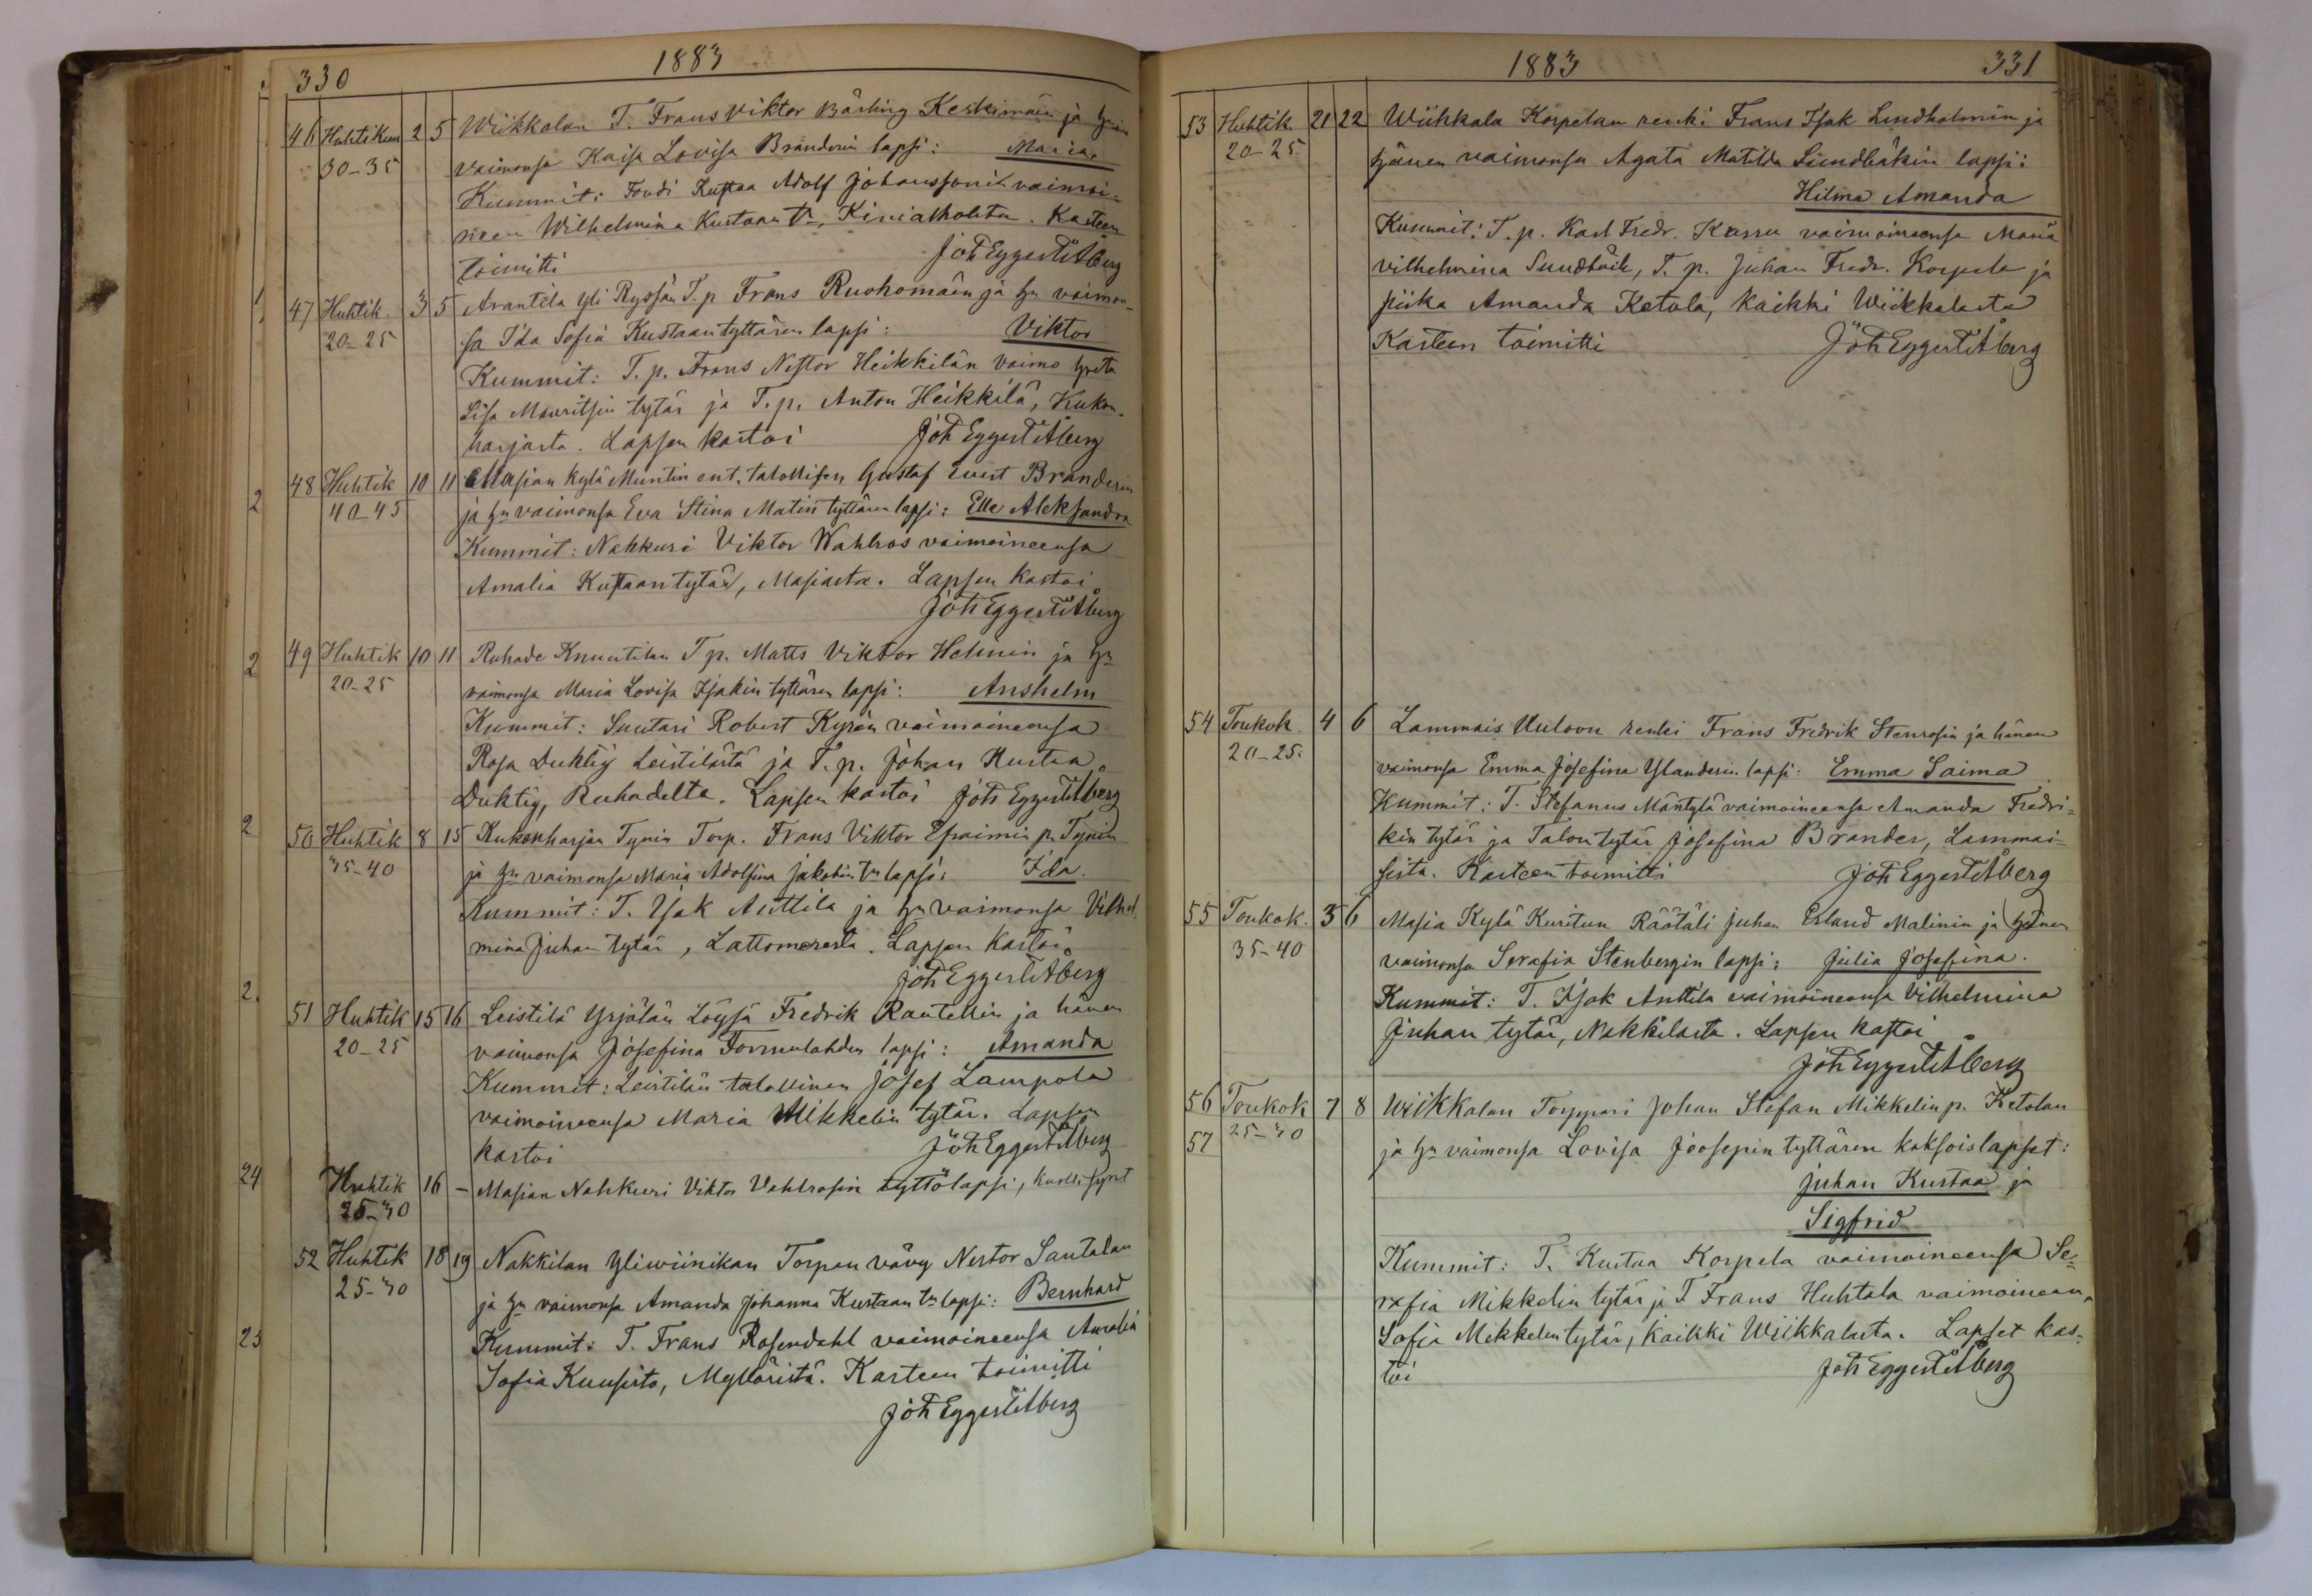 330
1883
46 Huhtikuu 2 5 Wiikkalan T. Frans Viktor Bärling Keskimäen ja hänen
30-35 vaimonsa Kaisa Lovisa Branderin lapsi: Maria.
Kummit: Kustaa Adolf Johanssoni vaimoi-
neen Wilhelmina Kustaan tr, Kasteen
toimitti Joh Eggert Åberg
47 Huhtik. 3 5 Arantila Yli Ryssän T.p Frans Ruohomäen ja hn vaimon-
20-25 sa Ida Sofia Kustaantyttären lapsi: Viktor
Kummit: T. p. Frans Nestor Heikkilän vaimo Greta
Lisa Mauritsin tytär ja T. p. Anton Heikkilä, Kukon-
harjasta. Lapsen kastoi Joh Eggert Åberg
2 48 Huhtik 10 11 Masian kylä Muntin ent. talollisen Gustaf Evert Branderin
40-45 ja hn vaimonsa Eva Stina Matin tyttären lapsi: Elle Aleksandra
Kummit: Nahkuri Viktor Wahlros vaimoineensa
Amalia Kustaantytär, Masiasta. Lapsen kastoi
Joh Eggert Åberg
2 49 Huhtik 10 11 Ruhade Knuutilan T p. Matts Viktor Helinin ja hn
20-25 vaimonsa Maria Lovisa Isakin tyttären lapsi: Anshelm
Kummit: Suutari Robert Kyrén vaimoineensa
Rosa Duktig Leistilästä ja T. p. Johan Kustaa
Duktig, Ruhadelta. Lapsen kastoi Joh Eggert Åberg
2 50 Huhtik 8 15 Kukonharjan Tynin Torp. Frans Viktor Efraimin p. Tynin
35-40 ja hn vaimonsa Maria Adolfina Jakobin tn lapsi: Ida.
Kummit: T. Isak Anttila ja hn vaimonsa Vilhel-
mina Juhan tytär, Lattomerestä. Lapsen kastoi
Joh Eggert Åberg
2. 51 Huhtik 15 16 Leistilä Yrjölän Löysä Fredrik Rantellin ja hänen
20-25 vaimonsa Josefina Tormulahden lapsi: Amanda
Kummit: Leistilän talollinen Josef Lampola
vaimoineensa Maria Mikkelin tytär. Lapsen
kastoi Joh Eggert Åberg
24 Huhtik 16 - Masian Nahkuri Viktor Vahlrosin tyttölapsi, kuoll. synt
25-30
52 Huhtik 18 19 Nakkilan Yliwiinikan Torpan vävy Nestor Santalan
25-30 ja hn vaimonsa Amanda Johanna Kustaan tn lapsi: Bernhard
23 Kummit: T. Frans Rosendahl vaimoineensa Amalia
Sofia Kuusisto, Mylläristä. Kasteen toimitti
Joh Eggert Åberg
1883
331
53 Huhtik. 21 22 Wiikkala Korpelan renki Frans Isak Lindholmin ja
20-25. hänen vaimonsa Agata Matilda Sundbäkin lapsi:
Hilma Amanda
Kummit: T. p. Karl Fredr. Karru vaimoineensa Maria
Vilhelmina Sundbäck, T. p. Juhan Fredr. Korpela ja
piika Amanda Ketola, kaikki Wiikkalasta
Kasteen toimitti Joh Eggert Åberg
54 Toukok. 4 6 Lammais Uutoon renki Frans Fredrik Stenrosin ja hänen
20-25. vaimonsa Emma Josefina Ylanderin lapsi: Emma Saima
Kummit: T. Stefanus Mäntylä vaimoineensa Amanda Fredri-
kin tytär ja Talon tytär Josefina Brander, Lammai-
sista. Kasteen toimitti Joh Eggert Åberg
55 Toukok. 3 6 Masia Kylä Kuritun Räätäli Juhan Erland Malinin ja hänen
35-40 vaimonsa Serafia Stenbergin lapsi: Julia Josefina.
Kummit: T. Isak Anttila vaimoineensa Vilhelmina
Juhan tytär, Nakkilasta. Lapsen kastoi
Joh Eggert Åberg
56 Toukok 7 8 Wiikkalan Torppari Johan Stefan Mikkelin p. Ketolan
57 25-30 ja hn vaimonsa Lovisa Joosepin tyttären kaksoislapset:
Juhan Kustaa ja
Sigfrid
Kummit: T. Kustaa Korpela vaimoineensa Se-
rafia Mikkelin tytär ja T Frans Huhtala vaimoineen
Sofia Mikkelin tytär, kaikki Wiikkalasta. Lapset kas-
toi Joh Eggert Åberg